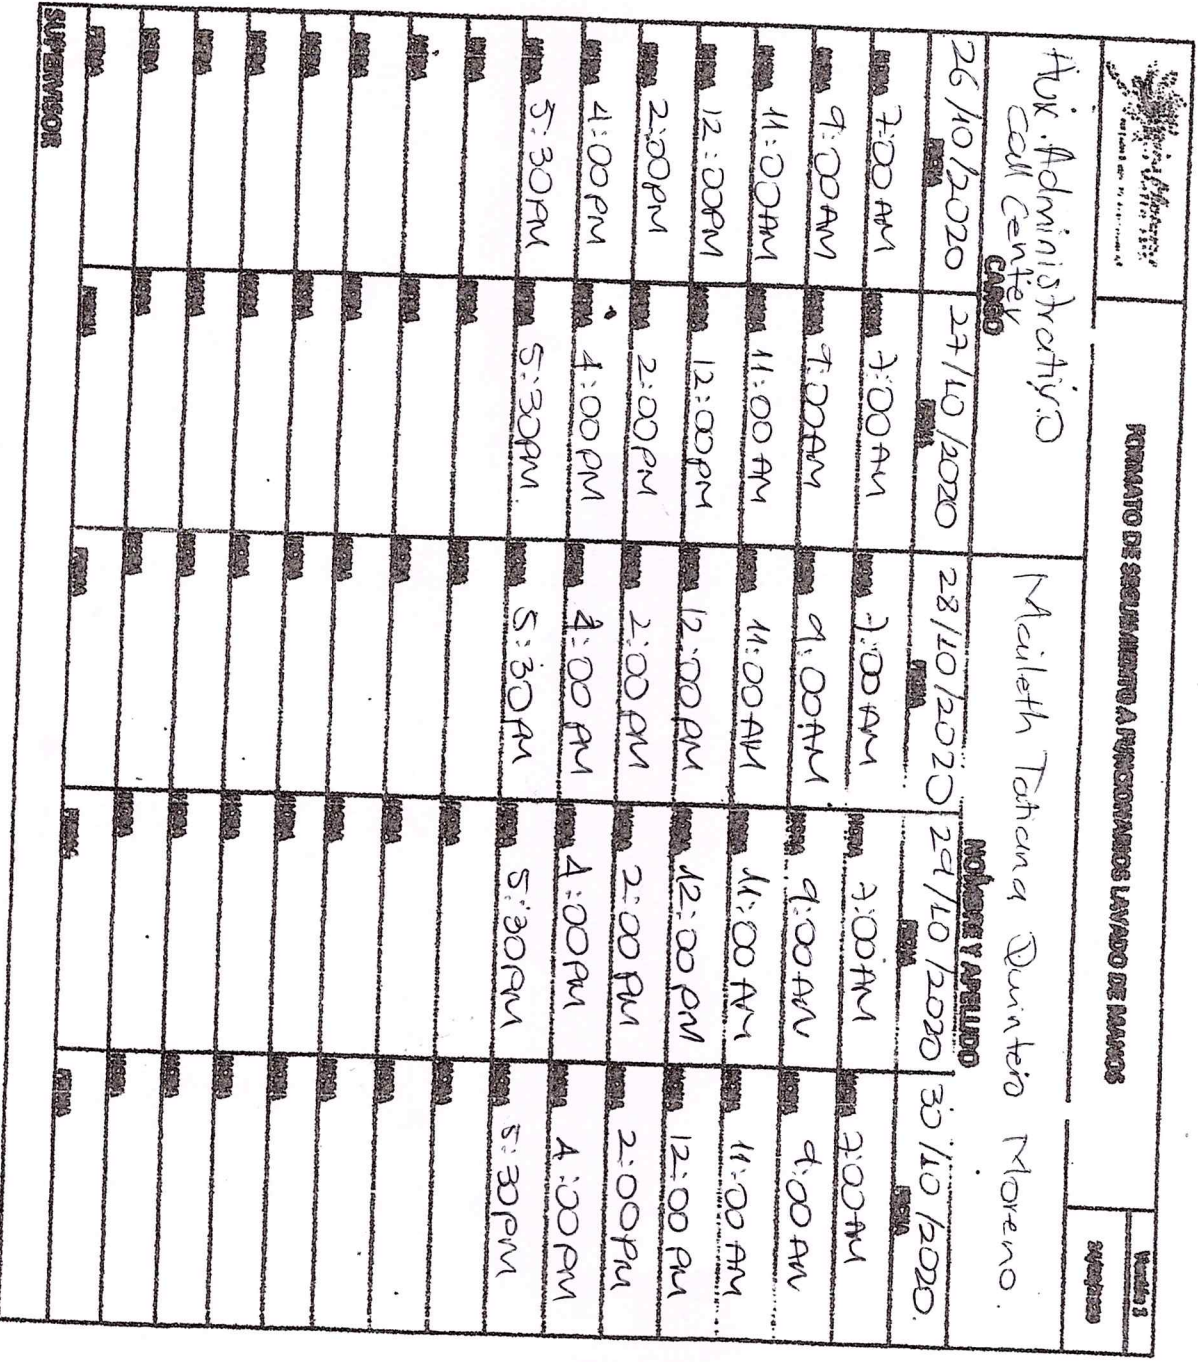 FORMATO DE SEGUIMIENTO A FUNCIONARIOS LAVADO DE MANOS
Versión 2
Aux. Administrativo
Call Center
Maileth Tatiana Quintero Moreno.
CARGO
NOMBRE Y APELLIDO
26/10/2020 27/10/2020 28/10/2020 29/10/2020 30/10/2020.
FECHA FECHA FECHA FECHA FECHA
HORA 7:00 AM HORA 7:00 AM HORA 7:00 AM HORA 7:00 AM HORA 7:00 AM
HORA 9:00 AM HORA 9:00 AM HORA 9:00 AM HORA 9:00 AM HORA 9:00 AM
HORA 11:00 AM HORA 11:00 AM HORA 11:00 AM HORA 11:00 AM HORA 11:00 AM
HORA 12:00 PM HORA 12:00 PM HORA 12:00 PM HORA 12:00 PM HORA 12:00 PM
HORA 2:00 PM HORA 2:00 PM HORA 2:00 PM HORA 2:00 PM HORA 2:00 PM
HORA 4:00 PM HORA 4:00 PM HORA 4:00 PM HORA 4:00 PM HORA 4:00 PM
HORA 5:30 PM HORA 5:30 PM. HORA 5:30 PM HORA 5:30 PM HORA 5:30 PM
HORA HORA HORA HORA HORA
HORA HORA HORA HORA HORA
HORA HORA HORA HORA HORA
HORA HORA HORA HORA HORA
HORA HORA HORA HORA HORA
HORA HORA HORA HORA HORA
HORA HORA HORA HORA HORA
FIRMA FIRMA FIRMA FIRMA FIRMA
SUPERVISOR